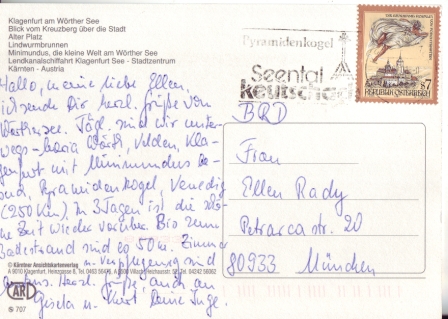 Klagenfurt am Wörther See
Blick vom Kreuzberg über die Stadt
Alter Platz
Lindwurmbrunnen
Minimundus, die kleine Welt am Wörther See
Lendkanalschiffahrt Klagenfurt See - Stadtzentrum
Kärnten - Austria
Pyramidenkogel
Seental
keutschach
S 7
REPUBLIK ÖSTERREICH
Hallo, meine liebe Ellen,
ich sende Dir herzl. Grüße von
Wörthersee. Tägl. sind wir unter-
wegs - Maria Wörth, Velden, Kla-
genfurt mit Minimundus
Pyramidenkogel, Venedig
(250 Km). In 3 Tagen ist die
Zeit wieder vorbei. Bis zum
Badestrand sind es 50 m. Zimmer
u. Verpflegung sind
Herzl. Grüße auch an
Gisela u. Kurt Deine Inge.
BRD
Frau
Ellen Rady
Petrarcastr. 20
80933 München
© Kärntner Ansichtskartenverlag
A 9010 Klagenfurt
707